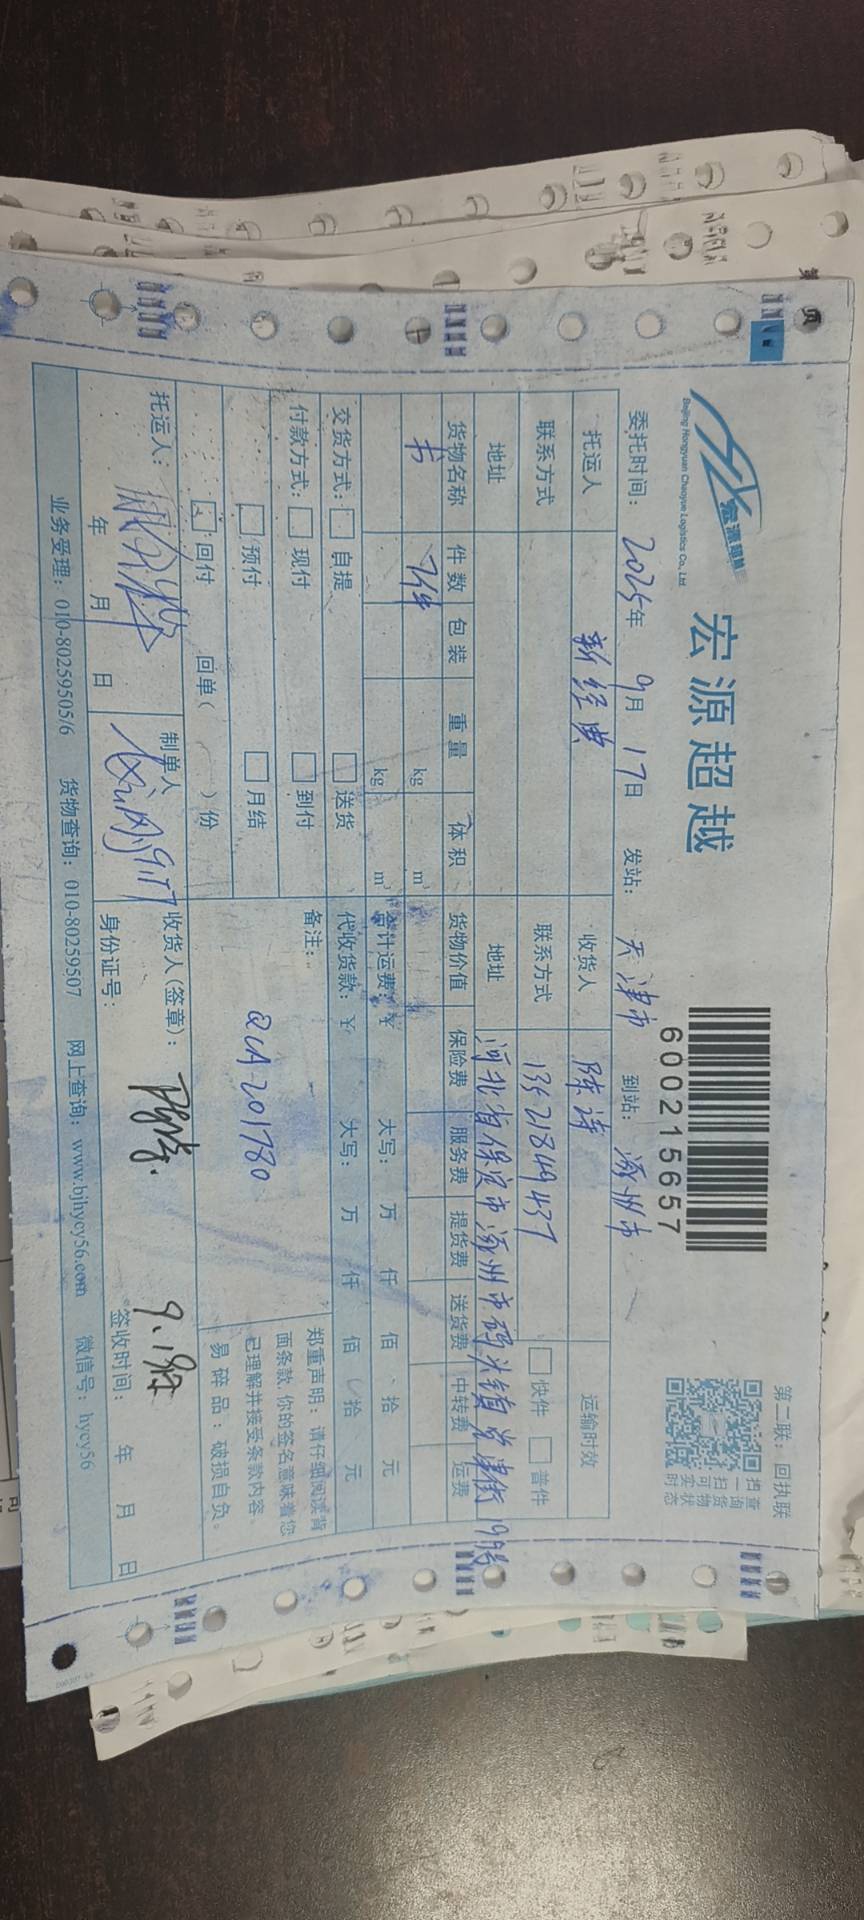 第二联：回执联
宏源超越
宏源超越
Beijing Hongyuan Chaoyue Logistics Co., Ltd
600215657
扫一扫可查询货物实时状态
委托时间： 2025年 9月 17日 发站： 天津市 到站： 涿州市
托运人 新经典 收货人 陈涛 运输时效
联系方式 联系方式 13521849437 快件 普件
地址 地址 河北省保定市涿州市码头镇 街19号
货物名称 件数 包装 重量 体积 货物价值 保险费 服务费 提货费 送货费 中转费 运费
书 2件 kg m³
kg m³ 合计运费：¥ 大写： 万 仟 佰 拾 元
交货方式： 自提 送货 代收货款：¥ 大写： 万 仟 佰 拾 元
付款方式： 现付 到付 备注：
预付 月结 QCA201780
回付 回单（ ）份
郑重声明：请仔细阅读背面条款，你的签名意味着您已理解并接受条款内容。
易碎品：破损自负。
托运人： 制单人 9.17 收货人(签章)： 9.18
年 月 日 身份证号： 签收时间： 年 月 日
业务受理：010-80259505/6 货物查询：010-80259507 网上查询：www.bjhycy56.com 微信号：hycy56